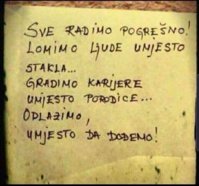 SVE RADIMO POGREŠNO!
LOMIMO LJUDE UMJESTO
STAKLA...
GRADIMO KARIJERE
UMJESTO PORODICE...
ODLAZIMO,
UMJESTO DA DOĐEMO!